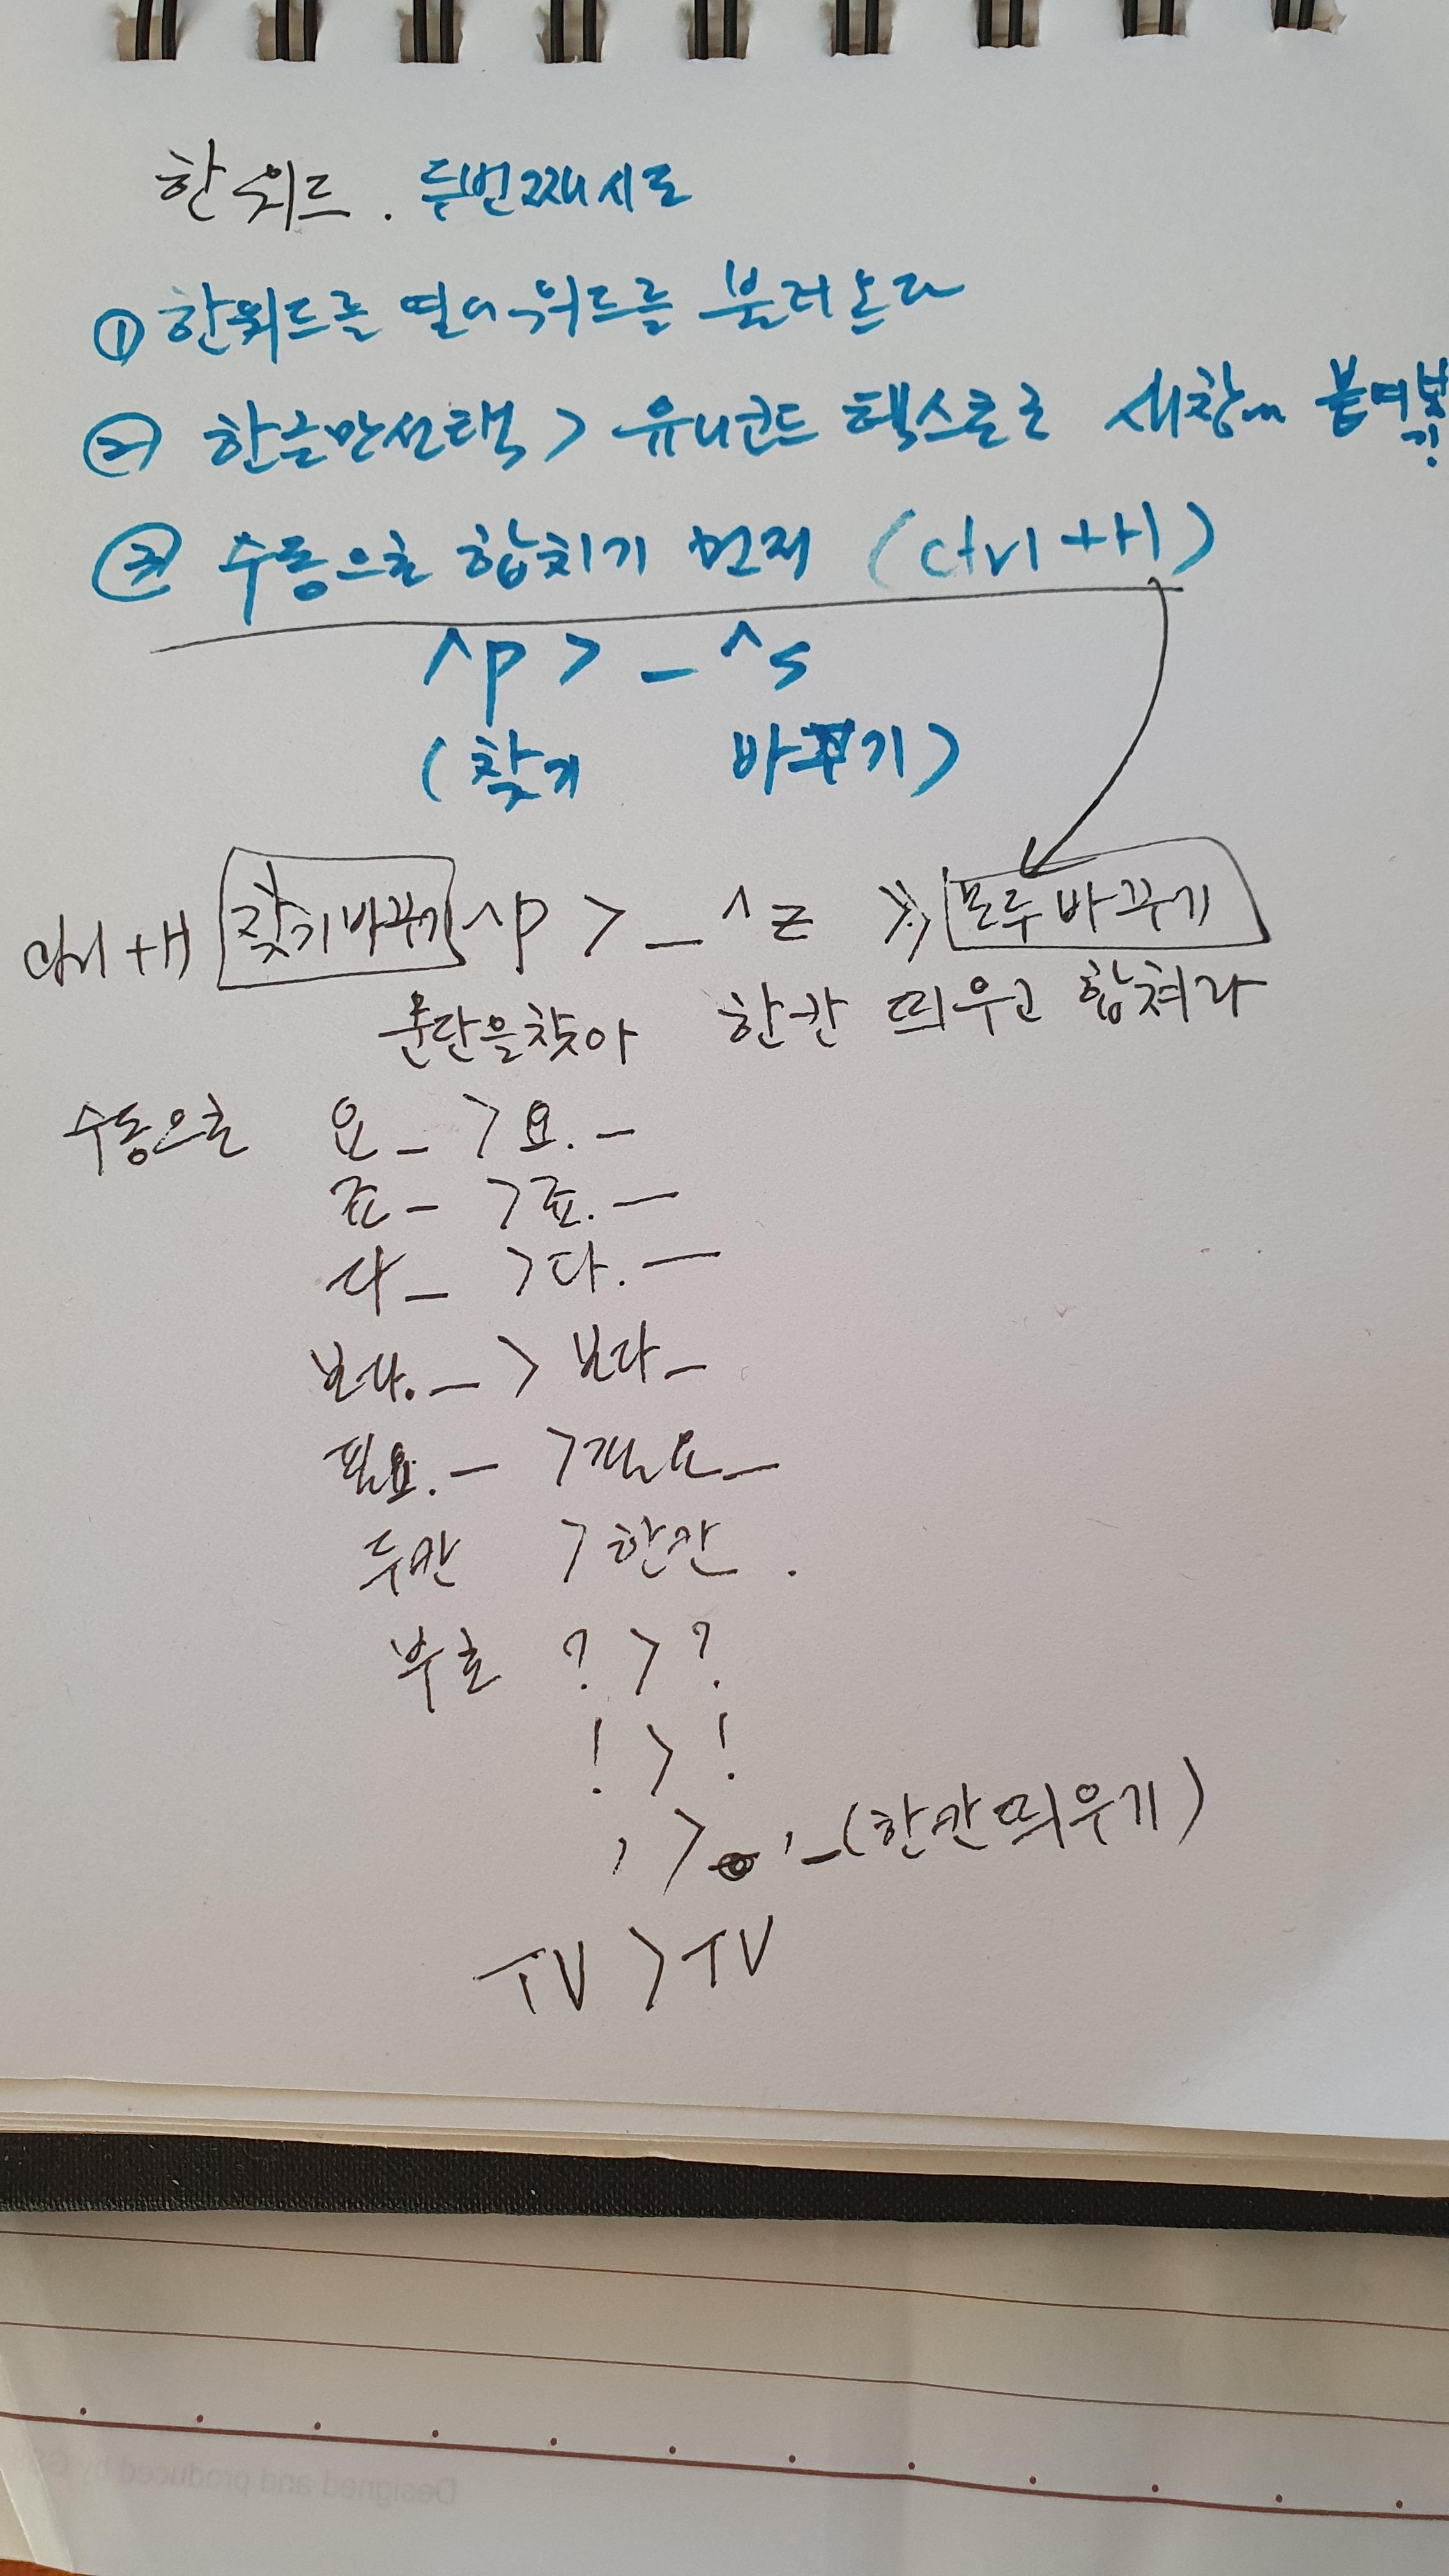 한워드. 두번째시도
① 한워드를 열어 워드를 불러온다
② 한글만선택 > 유니코드 텍스트로 새창에 붙여붙기!
③ 수동으로 합치기 먼저 (ctrl+H)
^p > _^s
(찾기 바꾸기)
ctrl+H 찾기바꾸기 ^p > _^z » 모두바꾸기
문단을찾아 한칸 띄우고 합쳐라
수동으로 요_ > 요._
죠_ > 죠._
다_ > 다._
보다._ > 보다_
필요._ > 필요_
두칸 > 한칸.
부호 ? > ?
! > !
, > ,_(한칸띄우기)
TV > TV
Designed and produced by